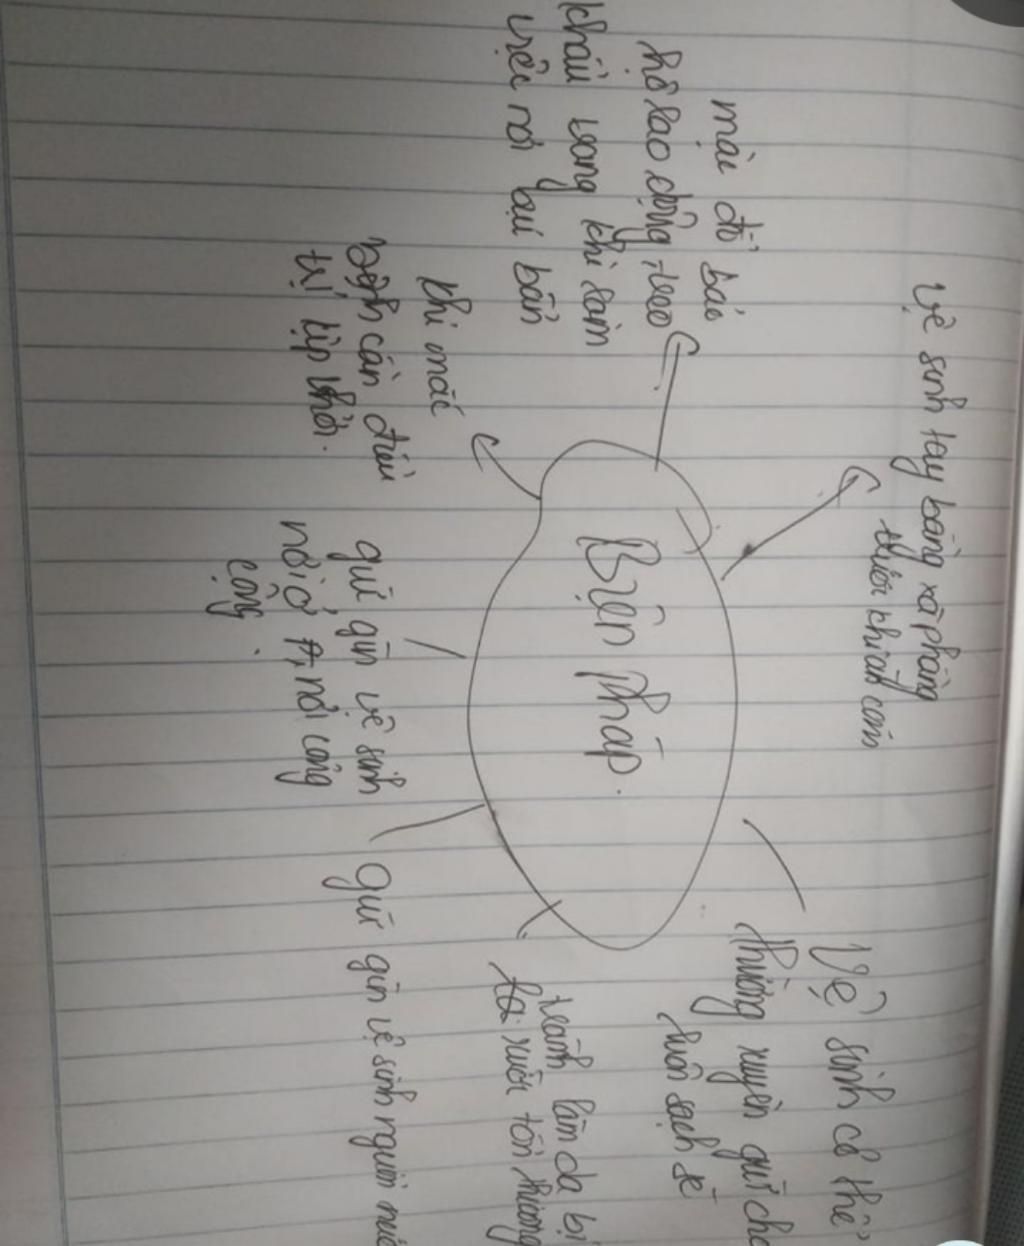 Vệ sinh tay bằng xà phòng
trước khi ăn cơm
mặc đồ bảo
hộ lao động, đeo
khẩu trang khi làm
việc nơi bụi bẩn
khi mắc
bệnh cần điều
trị kịp thời.
Biện pháp.
Vệ sinh cơ thể
thường xuyên giữ cho
luôn sạch sẽ
giữ gìn vệ sinh
nơi ở, nơi công
cộng.
tránh làm da bị
xước tổn thương
giữ gìn vệ sinh nguồn nước